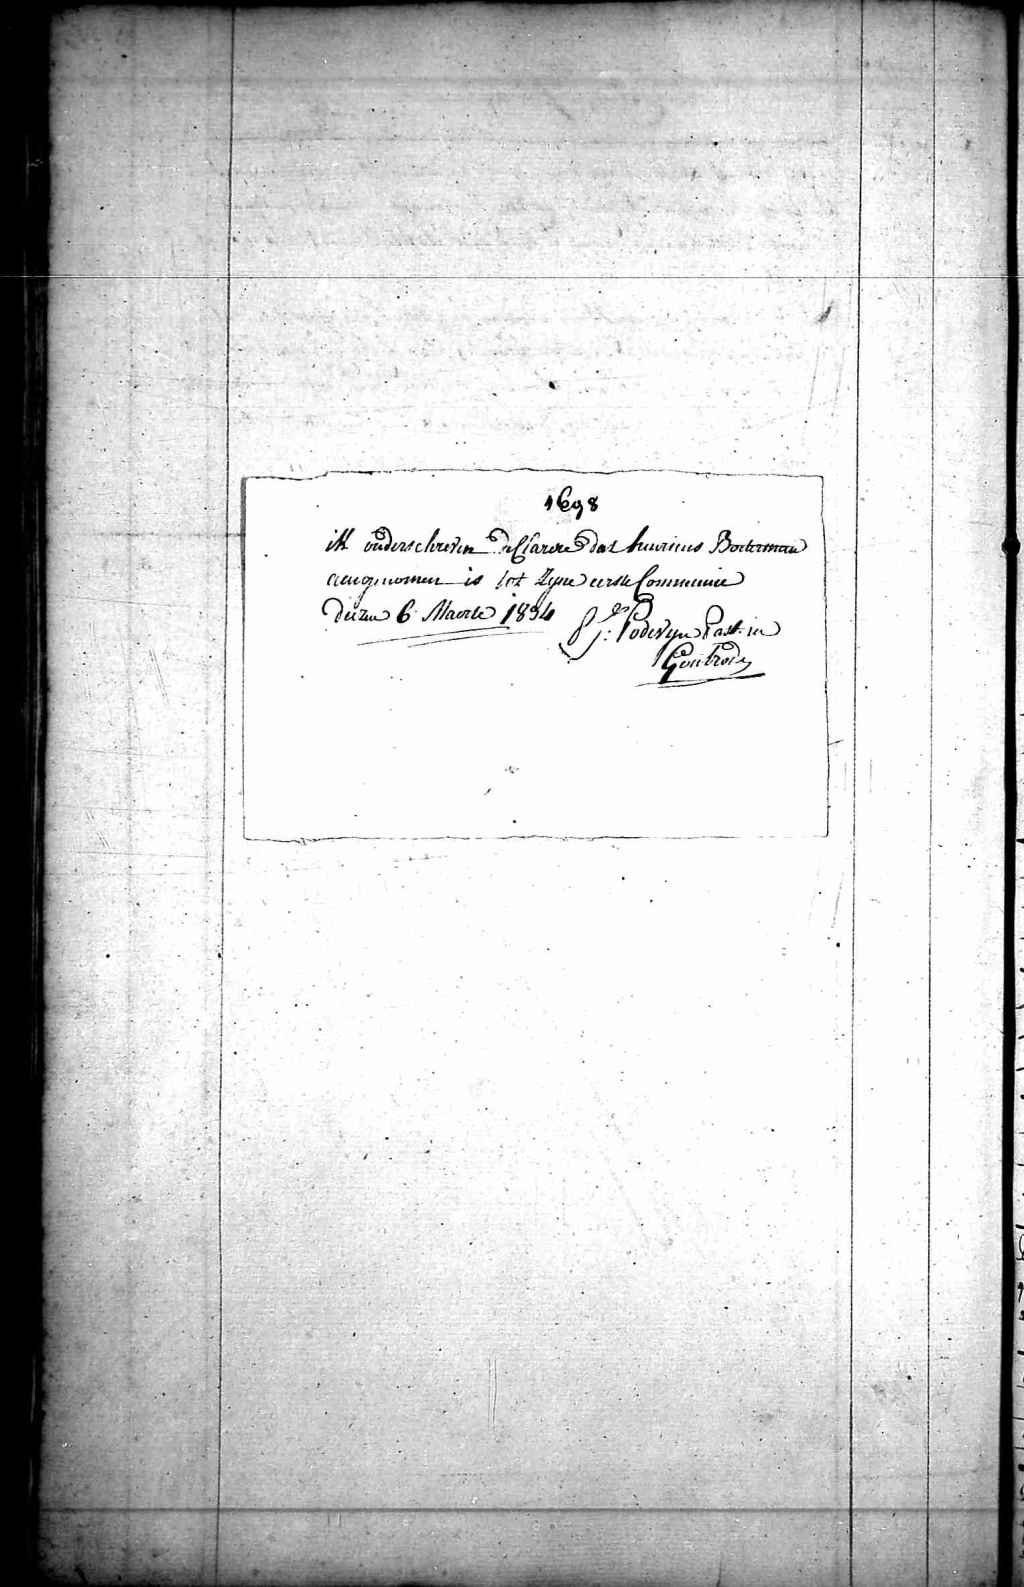 1698
ik onderschreven declarere dat henricus Boterman
aengenomen is tot Zyne eerste Communie
dezen 6 Maerte 1834
J: Podevyn Past. in
Gontrode